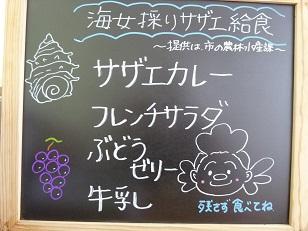 海女採りサザエ給食
～提供は、市の農林水産課～
サザエカレー
フレンチサラダ
ぶどう
ゼリー
牛乳し
残さず食べてね